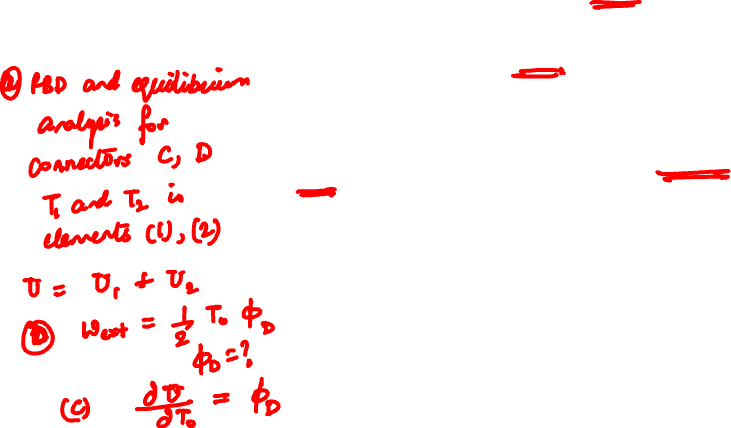 (a) FBD and equilibrium
analysis for
connectors C, D
T₁ and T₂ in
elements (1), (2)
U = U₁ + U₂
(b) Wext = 1/2 T₀ ϕ_D
ϕ_D = ?
(c) ∂U/∂T₀ = ϕ_D